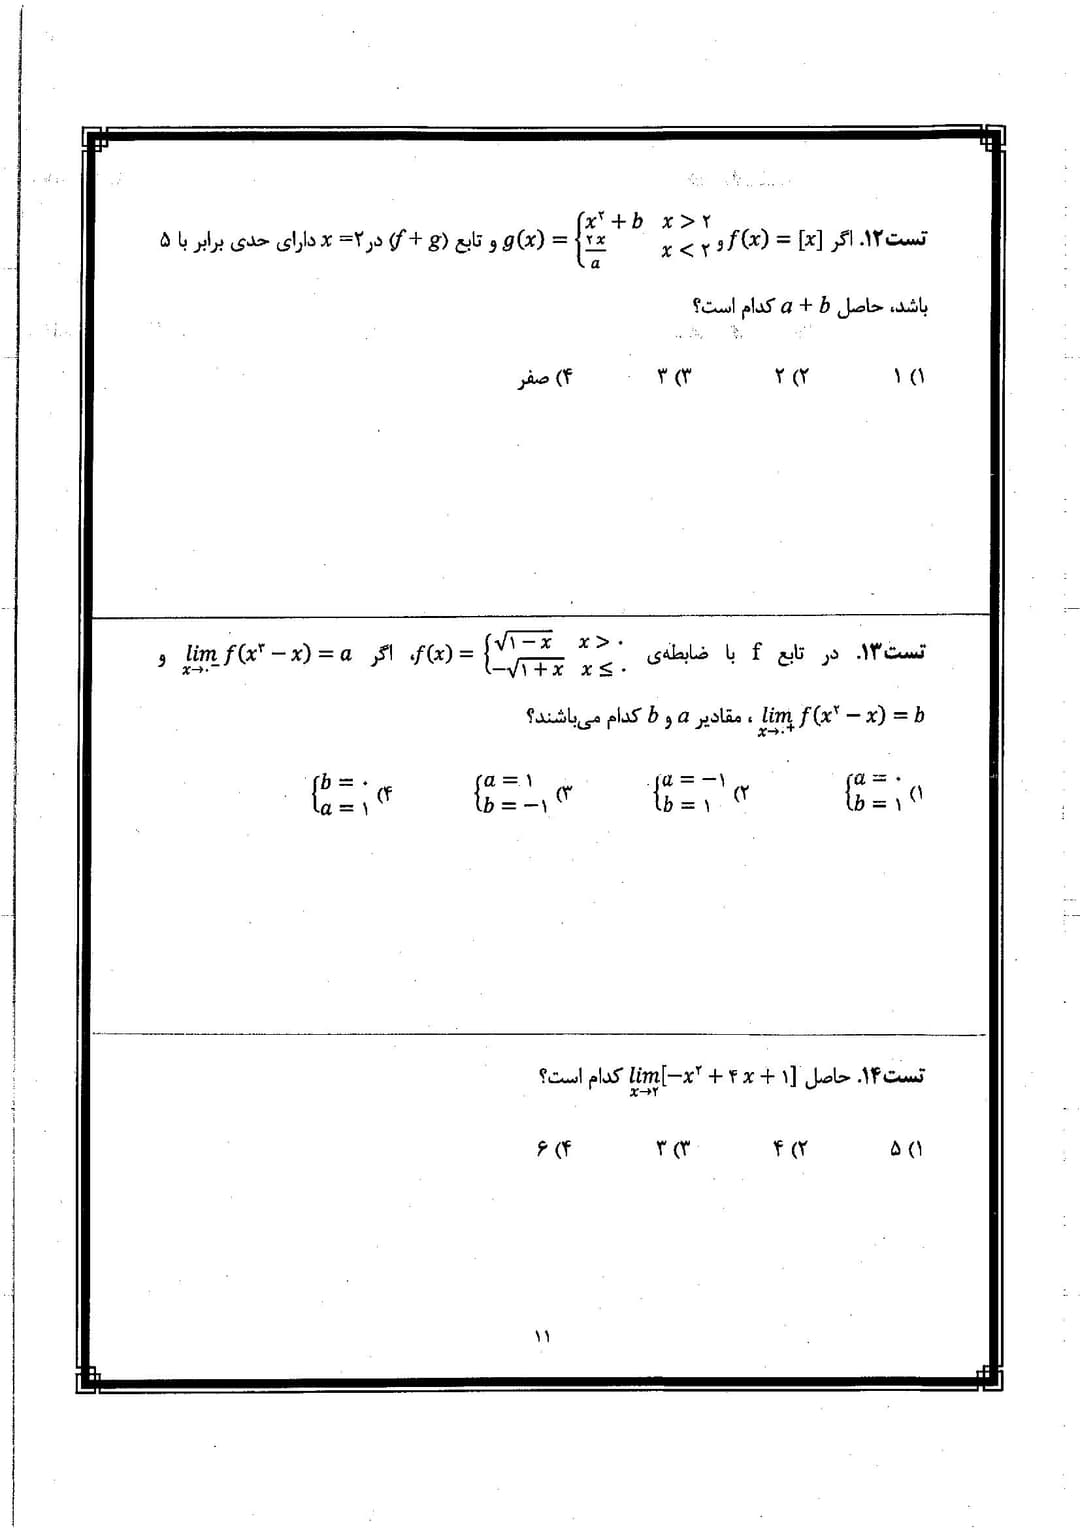 تست۱۲. اگر f(x) = [x] و g(x) = {x² + b x > ۲ , ۲x/a x < ۲ و تابع (f + g) در x = ۲ دارای حدی برابر با ۵
باشد، حاصل a + b کدام است؟
۱) ۱ ۲) ۲ ۳) ۳ ۴) صفر
تست۱۳. در تابع f با ضابطه‌ی f(x) = {√(۱ − x) x > ۰ , −√(۱ + x) x ≤ ۰، اگر lim x→۰⁻ f(x³ − x) = a و
lim x→۰⁺ f(x² − x) = b ، مقادیر a و b کدام می‌باشند؟
۱) {a = ۰ , b = ۱ ۲) {a = −۱ , b = ۱ ۳) {a = ۱ , b = −۱ ۴) {b = ۰ , a = ۱
تست۱۴. حاصل lim x→۲ [−x² + ۴x + ۱] کدام است؟
۱) ۵ ۲) ۴ ۳) ۳ ۴) ۶
۱۱